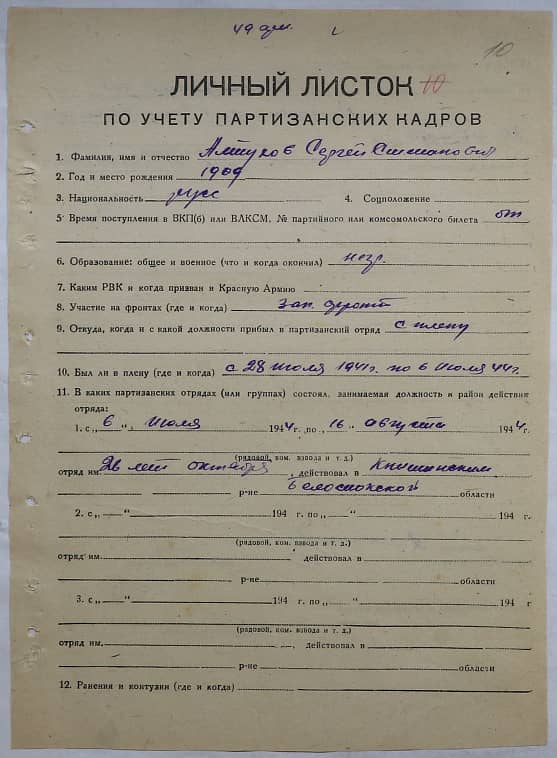 49
10
ЛИЧНЫЙ ЛИСТОК 10
ПО УЧЕТУ ПАРТИЗАНСКИХ КАДРОВ
1. Фамилия, имя и отчество Сергей
2. Год и место рождения 1909
3. Национальность русс 4. Соцположение
5 Время поступления в ВКП(б) или ВЛКСМ, № партийного или комсомольского билета б/п
6. Образование: общее и военное (что и когда окончил) незр.
7. Каким РВК и когда призван в Красную Армию
8. Участие на фронтах (где и когда) Зап. фронт
9. Откуда, когда и с какой должности прибыл в партизанский отряд с плену
10. Был ли в плену (где и когда) с 28 июля 1941г. по 6 июля 44г.
11. В каких партизанских отрядах (или группах) состоял, занимаемая должность и район действия
отряда:
1. с „ 6 “ июля 1944г. по „ 16 “ августа 1944г.
(рядовой, ком. взвода и т. д.)
отряд им. 26 лет октября, действовал в Кнышинском
р-не Белостокской области
2. с „ “ 194 г. по „ “ 194 г.
(рядовой, ком. взвода и т. д.)
отряд им. действовал в
р-не области
3. с „ “ 194 г. по „ “ 194 г
(рядовой, ком. взвода и т. д.)
отряд им. , действовал в
р-не области
12. Ранения и контузии (где и когда)